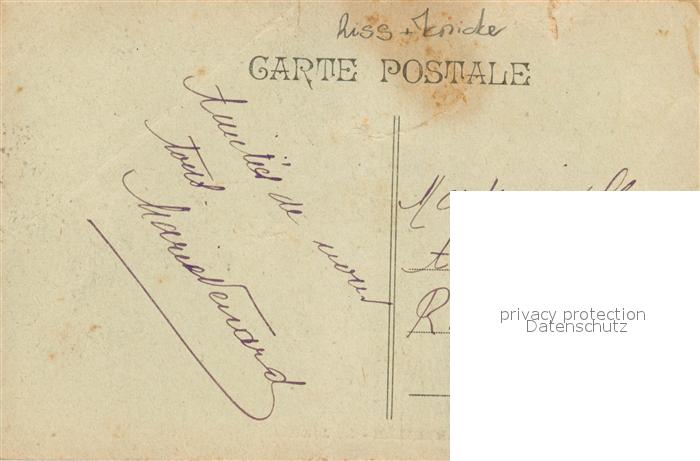 Riss + Knicke
CARTE POSTALE
Amitiés de nous
tous
Marie Venard
R
privacy protection
Datenschutz